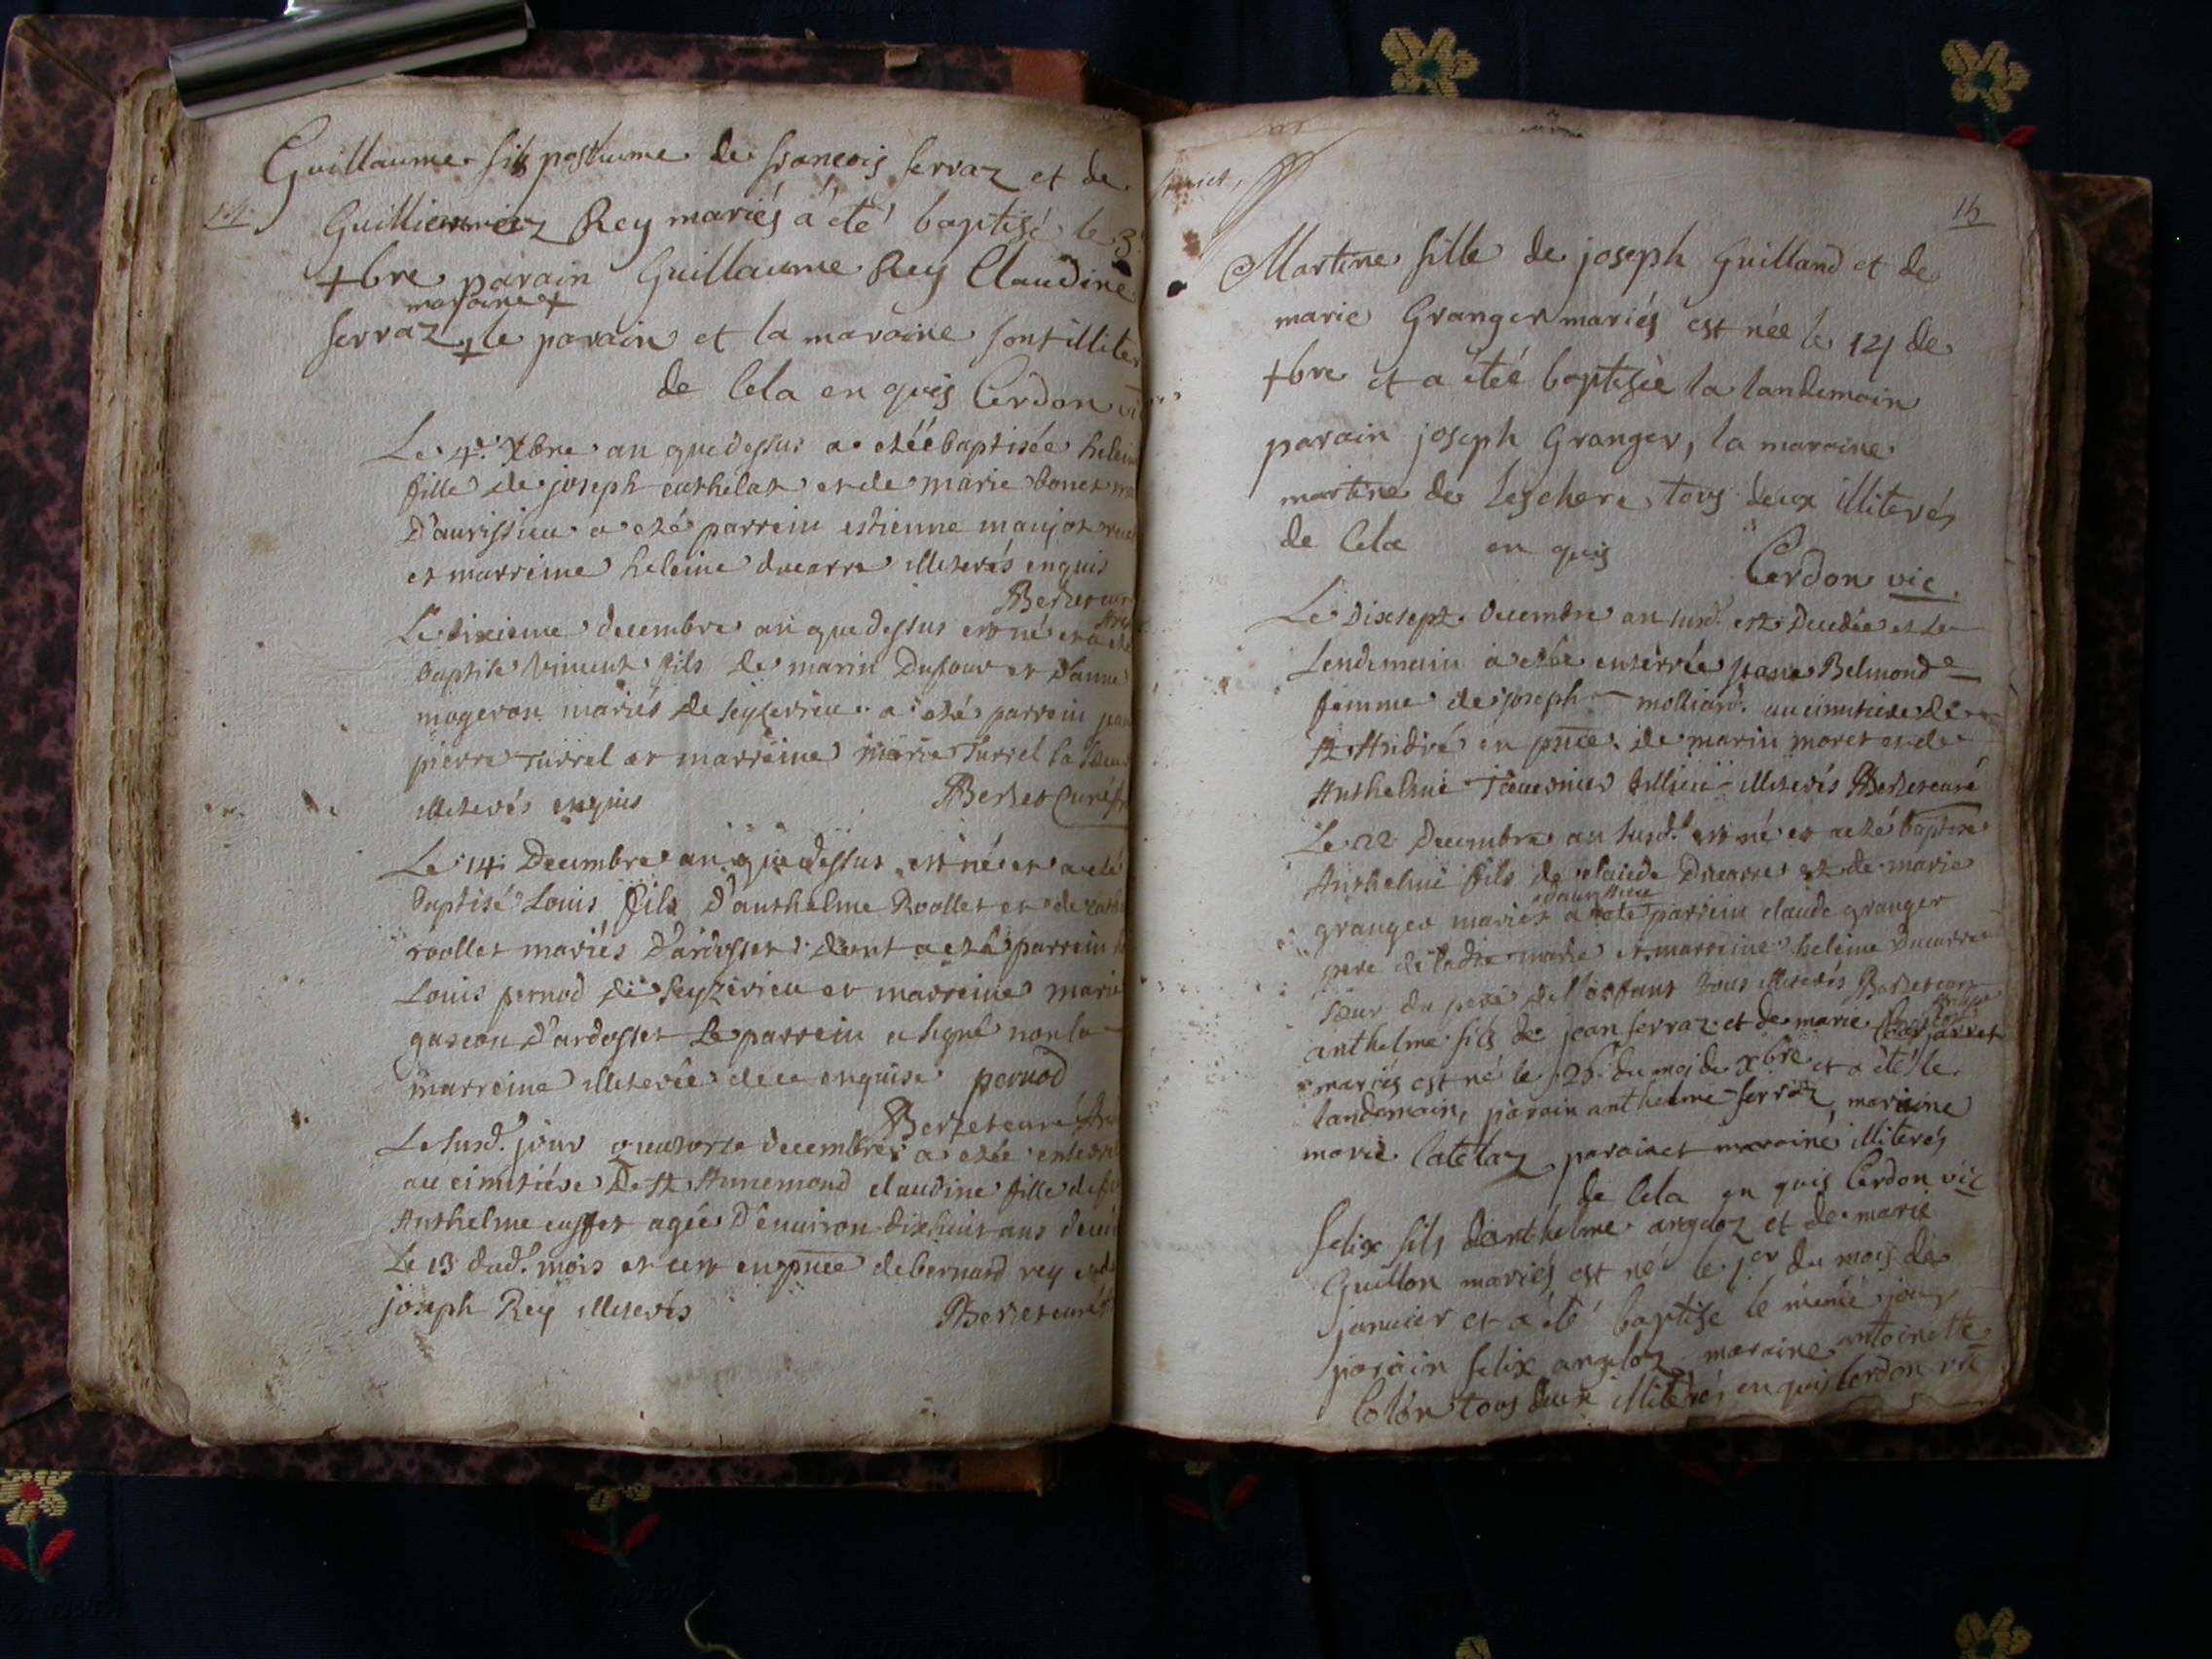 14
Guillaume fils postume de francois ferraz et de
Rey mariés a été baptisé le 3
xbre parain Guillaume Rey Claudine
maraine x
ferraz x le parain et la maraine sont illiter
de cela en quis Cerdon vi
Le 4e. Xbre an que dessus a etéé baptisée helein
fille de joseph cathelat et de marie bonet
D'aurissieu a eté parrein estienne maujot
et marreine heleine ducarre illiterés enquis
Berzet curé
Le dixieme decembre an que dessus est né et a eté
baptise vincent fils de marin Dufour et D'anne
mogeron mariés de seyzerieu a eté parrein jean
pierre turrel et marreine marie turrel sa soeur
illiterés enquis Berzet curé
Le 14 Decembre an que dessus est né et a eté
baptisé Louis fils D'anthelme Roollet et de
roollet mariés D'ardosset dont a eté parrein
Louis pernod de seyzerieu et marreine marie
gascon D'ardosset Le parrein a signé non la
marreine illiterée de ce enquise pernod
Berzet curé
Le susd. jour quatorze decembre a etée enterré
au cimitiére De St Annemond claudine fille de
Anthelme agée D'environ dixhuit ans
Le 13 dud. mois et ce en pnce de bernard rey et de
joseph Rey illiterés Berzet curé
15
Martine fille de joseph Guilland et de
marie Granger mariés est née le 14 de
xbre et a étéé baptisée la landemain
parain joseph Granger, la maraine
martine de Leschere tous deux illiterés
de cela en quis Cerdon vic.
Le Dixsept. decembre an susd. est Decedée et le
Lendemain a etée enterrée Belmond
femme de joseph molliard. au cimitiere de
St André en pnce. de marin moret et de
Anthelme illiterés Berzet curé
Le 22 Decembre an susd. est né et a eté baptisé
Anthelme fils de claude Ducarre et de marie
d'aurissieu
granger mariés a eté parrein claude granger
pere de ladte marie et marreine heleine Ducarre
soeur du pere de l'enfant tous illiterés Berzet curé
anthelme fils de jean ferraz et de marie
mariés est né le 26 du moi de xbre et a été le
landemain, parain anthelme ferraz, maraine
marie catelaz parain et maraine illiterés
de cela en quis Cerdon vic
felix fils danthelme angeloz et de marie
Guillon mariés est né le 1er du mois de
janvier et a été baptise le même jour
parain felix angeloz maraine antoinette
Colon tous deux illiterés enquis Cerdon vic